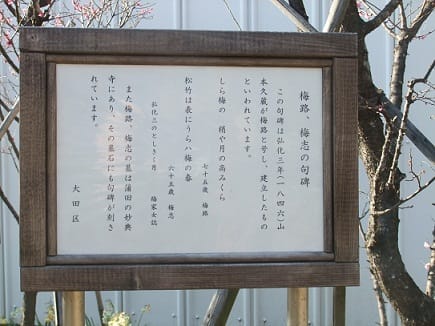 梅路、梅志の句碑
この句碑は弘化三年(一八四六)山
本久蔵が梅路と号し、建立したもの
といわれています。
しら梅の 稍や月の高みくら
七十五歳 梅路
松竹は表にうらハ梅の春
六十五歳 梅志
弘化三のとしきく月
梅家女誌
また梅路、梅志の墓は蒲田の妙典
寺にあり、その墓石にも句碑が刻さ
れています。
大田区